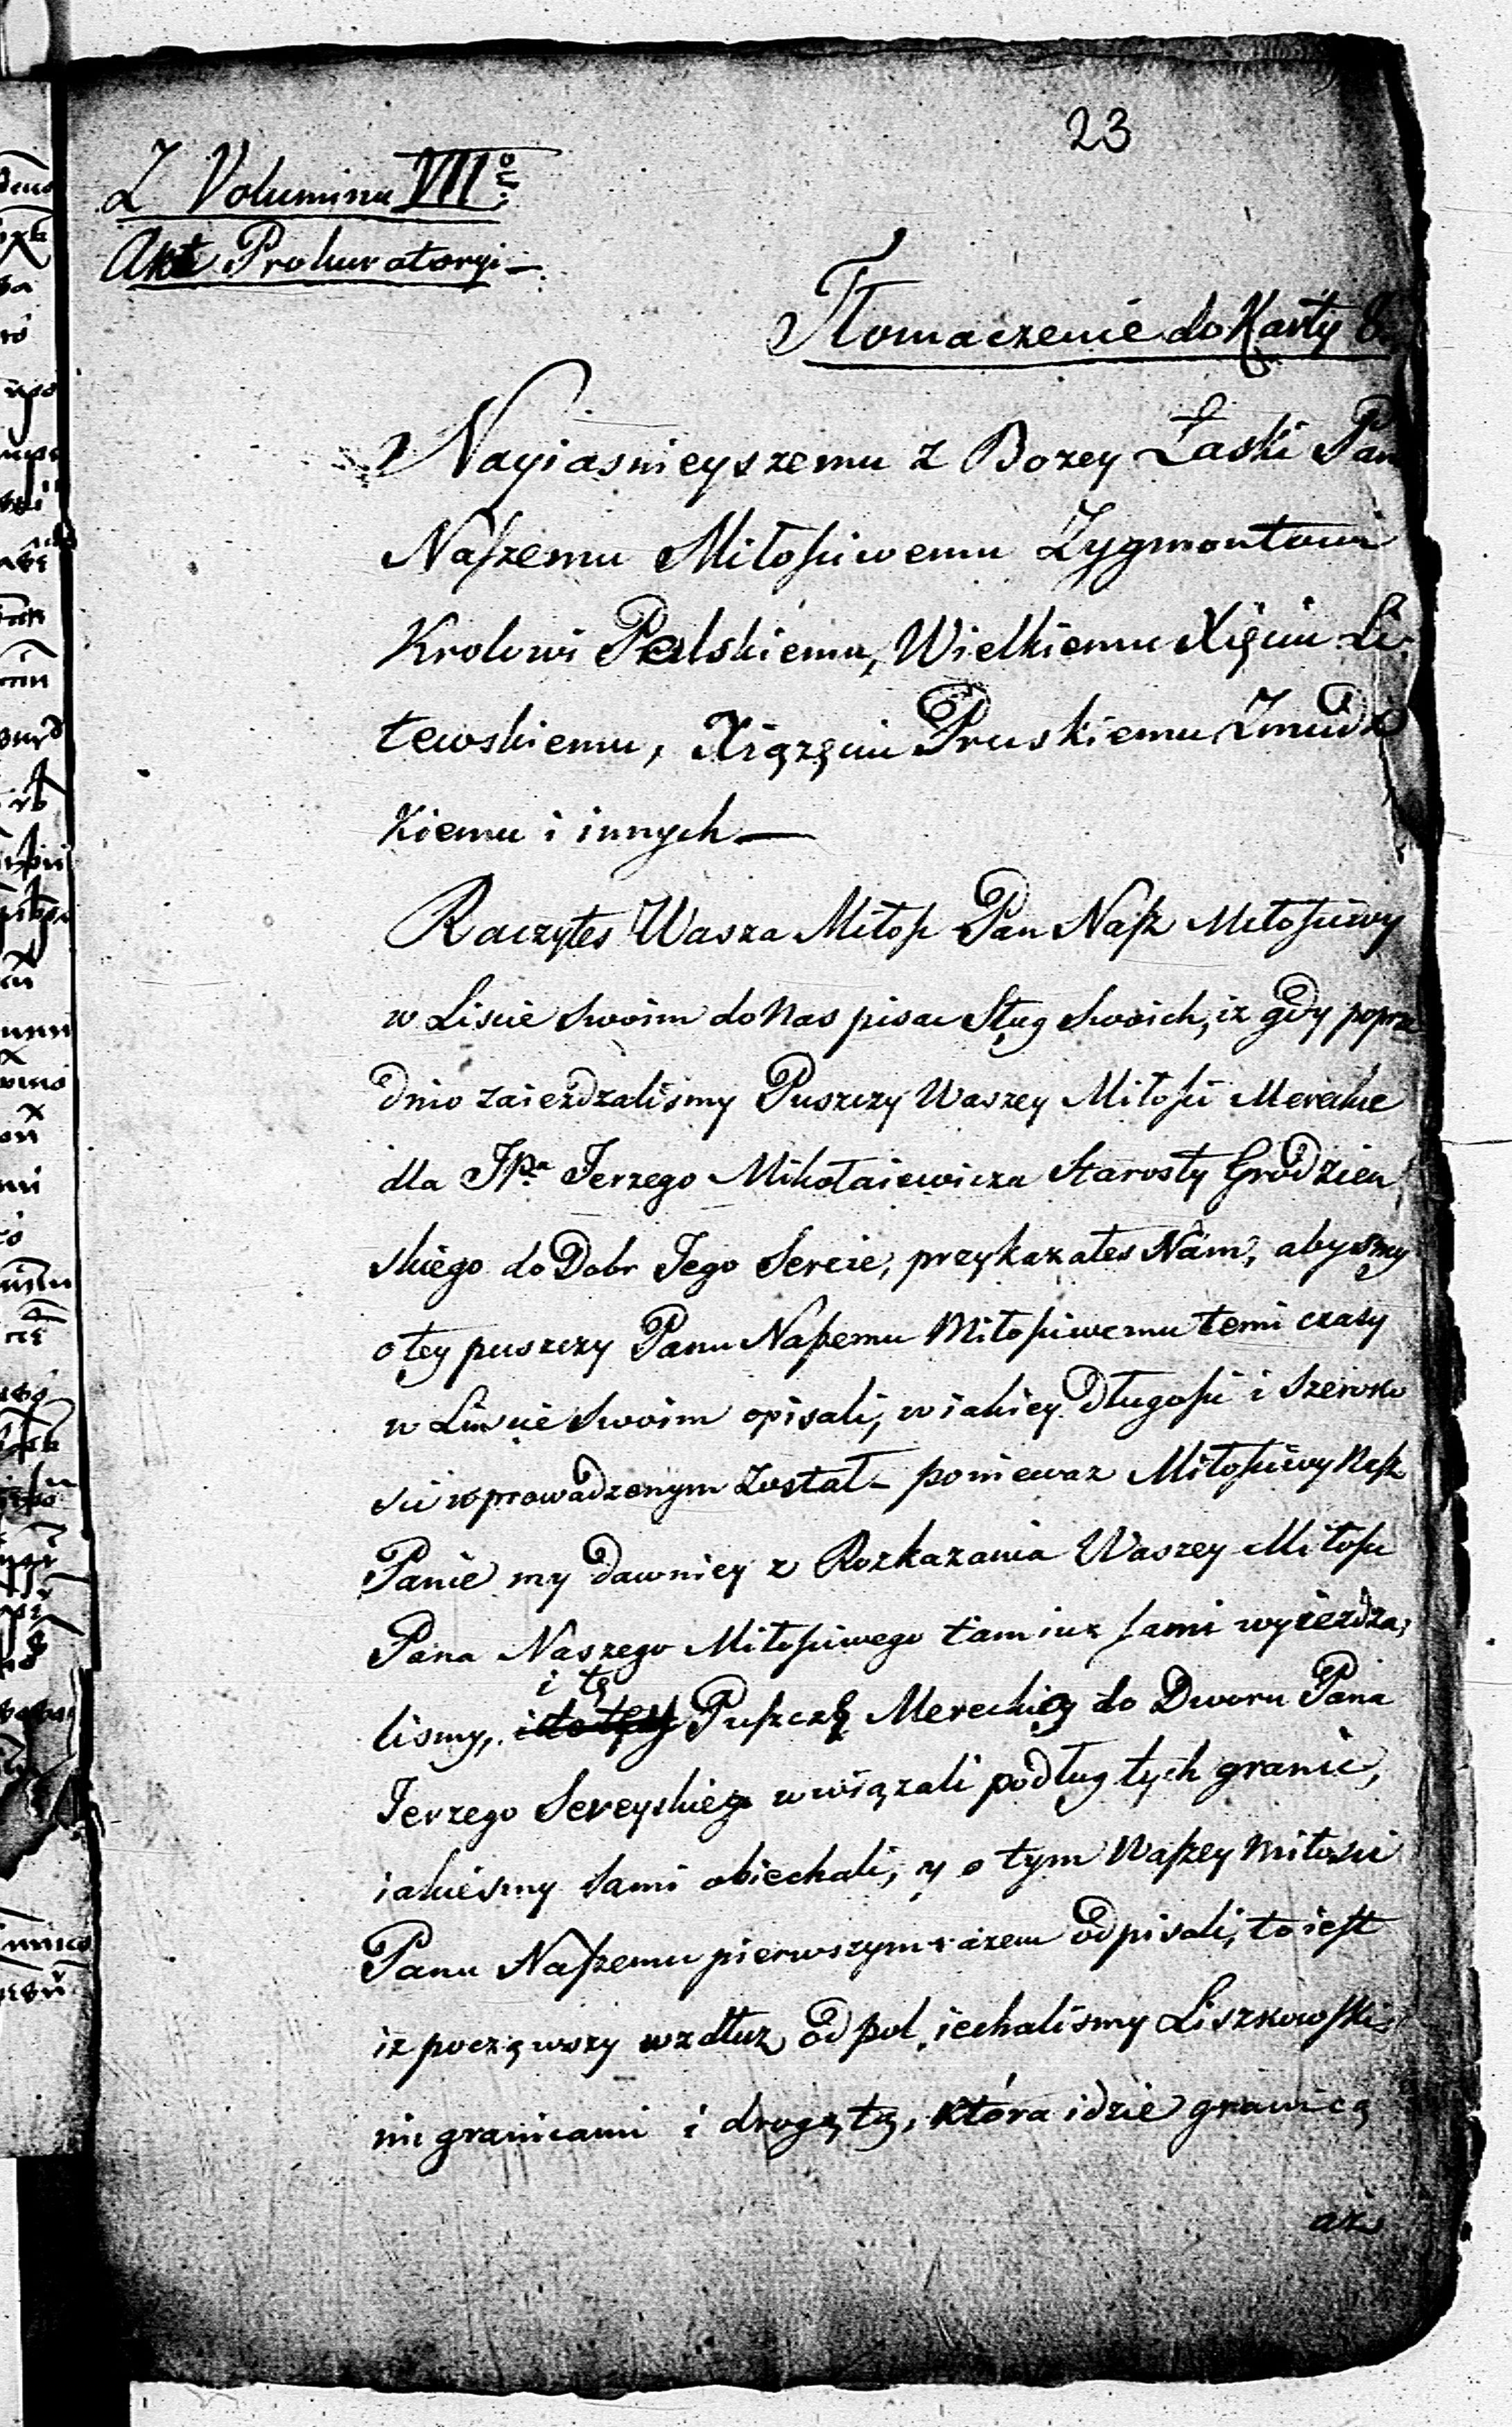 23
Z Voluminu VII<sup>o</sup>
Akt Prokuratoryi
Tłomaczenie do Karty 8.
Nayiasnieyszemu z Bozey Łaski Pan
Naszemu Miłosciwemu Zygmontowi
Krolowi Polskiemu, Wielkiemu Xięciu Li
tewskiemu, Xiązęciu Pruskiemu Zmudz
kiemu i innych —
Raczyłes Wasza Miłosc Pan Nasz Miłosciwy
w Liscie Swoim do Nas pisac Sług Swoich, iz gdy poprze
dnio zaiezdzalismy Puszczy Waszey Miłosci Mereckie
dla JPa Jerzego Mikołaiewicza Starosty Grodzien
skiego do Dobr Jego Sereie, przykazałes Nam, abysmy
o tey puszczy Panu Naszemu Miłosciwemu temi czasy
w Liscie Swoim opisali, w iakiey Długosci i Szeroko
sci wprowadzonym został — poniewaz Miłosciwy Nasz
Panie my dawniey z Rozkazania Waszey Miłosci
Pana Naszego Miłosciwego tam iuz sami wyiezdza,
i tę
lismy, Puszczę Merecką do Dworu Pana
Jerzego Sereyskiego wwiązali podług tych granic,
iakiesmy Sami obiechali, y o tym Waszey Miłosci
Panu Naszemu pierwszym razem odpisali, to iest
iz począwszy wzdłuz od pol iechalismy Liszkowski
mi granicami i drogą tą, która idzie granicą
az